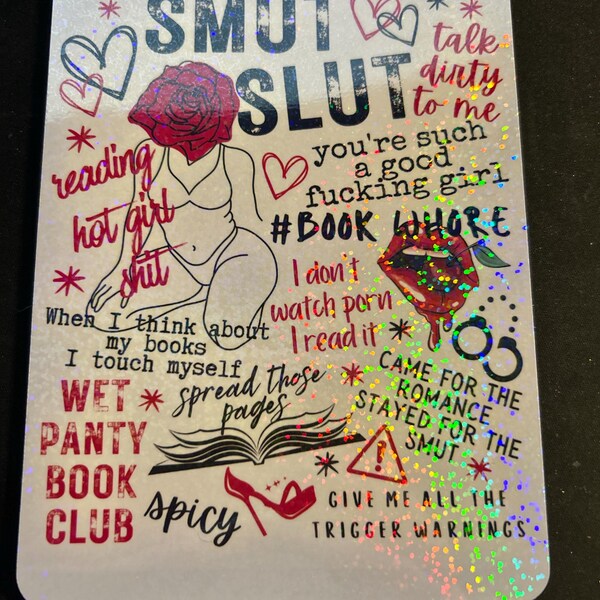 SMUT
SLUT
talk
dirty
to me
reading
hot girl
shit
you're such
a good
fucking girl
#BOOK WHORE
I don't
watch porn
I read it
When I think about
my books
I touch myself
spread those
pages
CAME FOR THE
ROMANCE
STAYED FOR THE
SMUT
WET
PANTY
BOOK
CLUB
spicy
GIVE ME ALL THE
TRIGGER WARNINGS